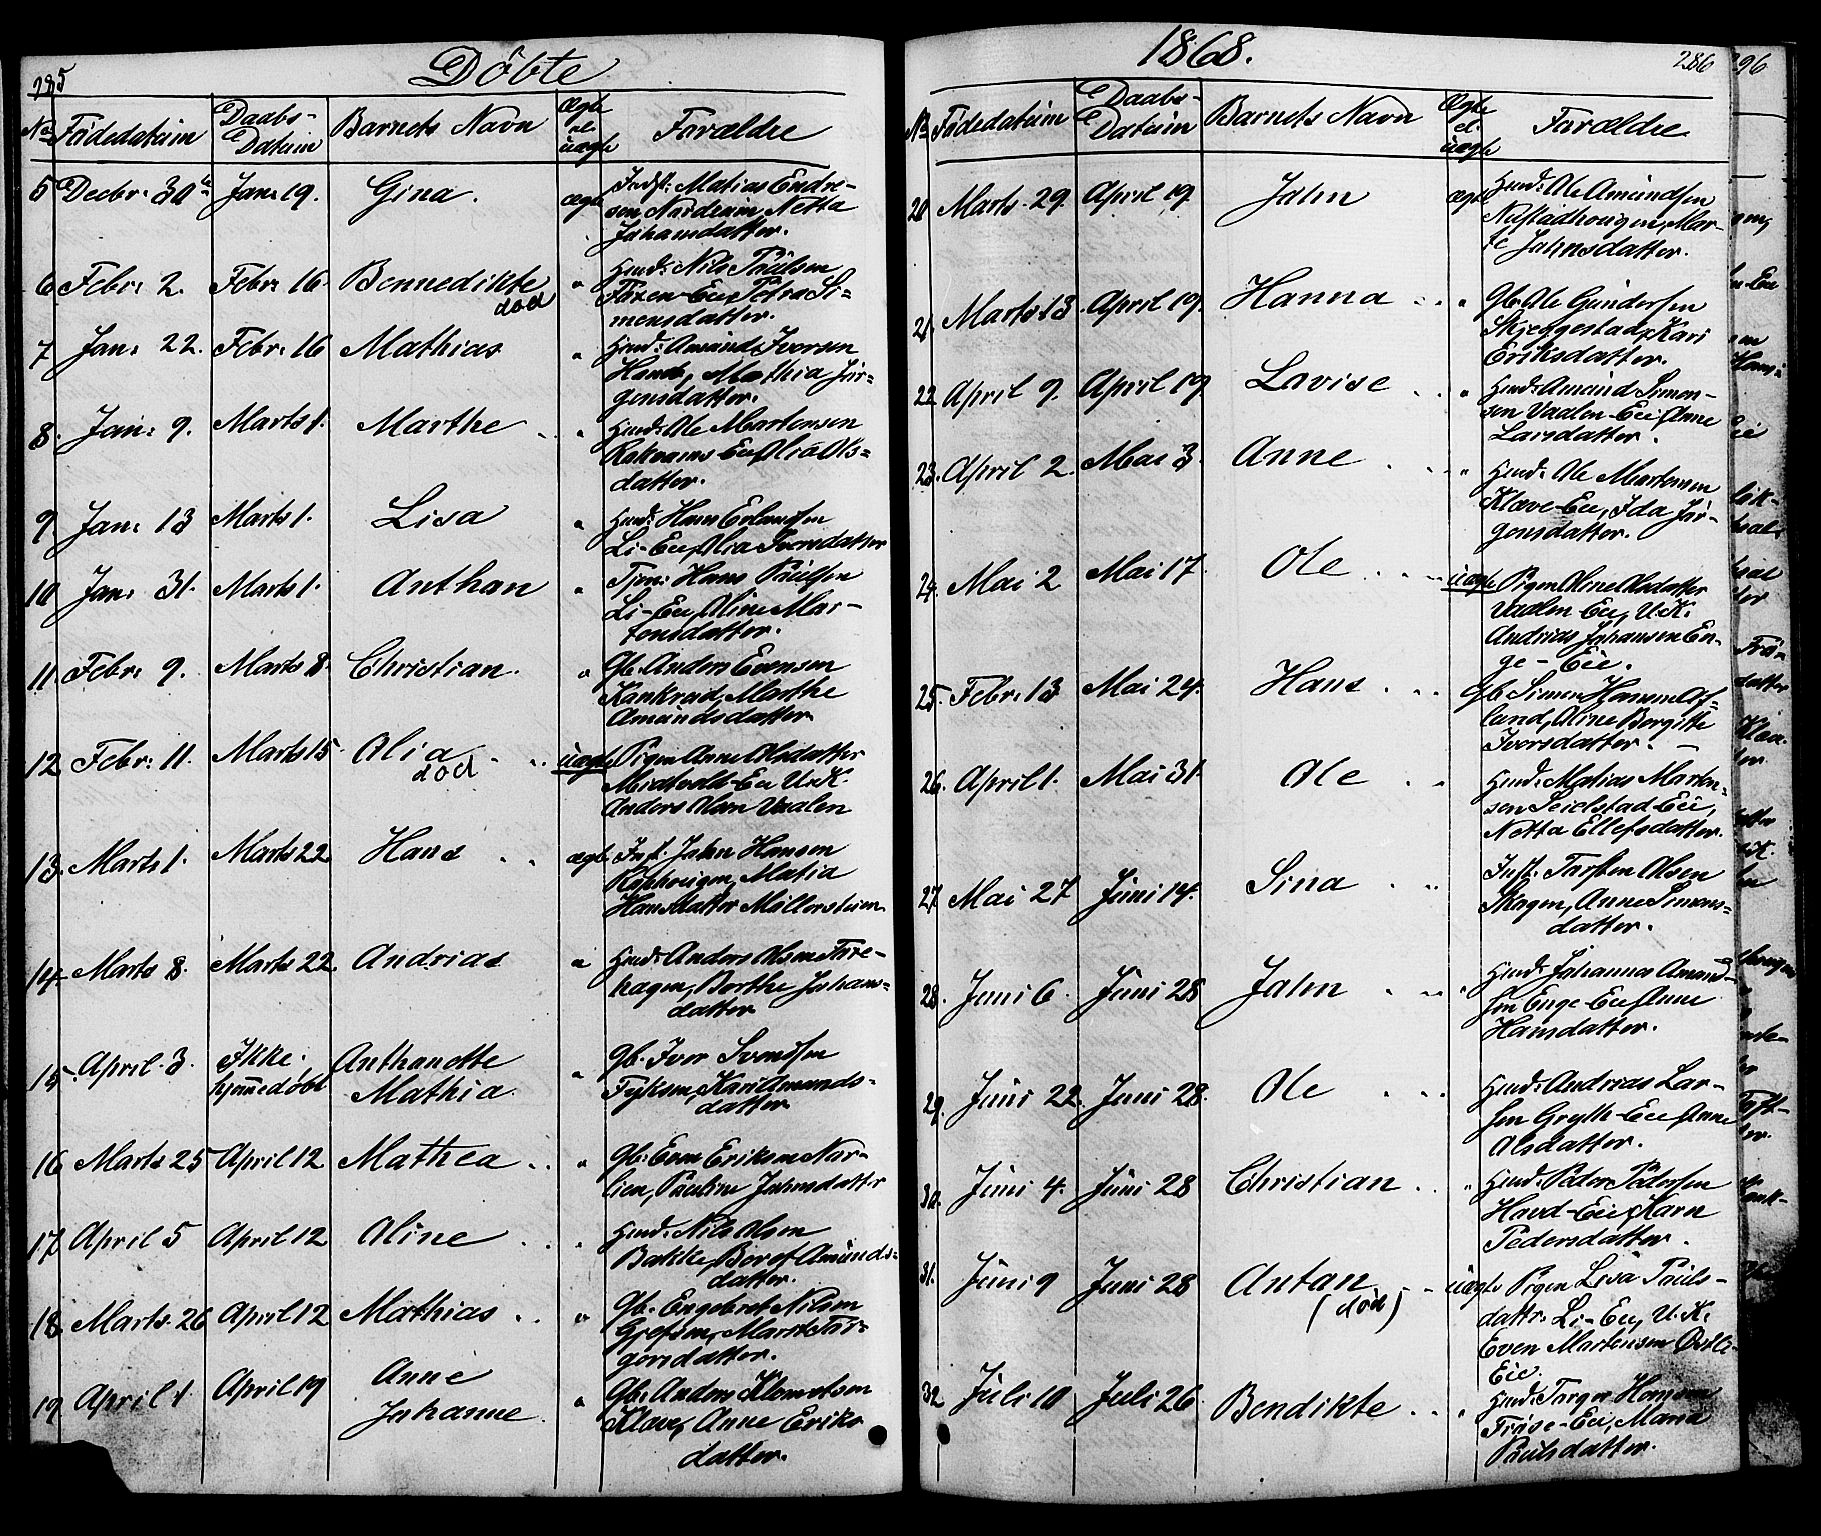 285
Döbte
No Födedatum Daabs-Datum Barnets Navn Ægte el. uægte Forældre
5 Decbr. 30te Jan. 19. Gina. ægte Indst. Matias Endre-
sen Nordrum, Netta
Johansdatter.
6 Febr. 2. Febr. 16. Bennedikte " Huusm. Nils Paulsen
død Eie, Petra Si-
mensdatter.
7 Jan. 22. Febr. 16 Mathias " Amund Iversen
Mathia Jör-
gensdatter.
8. Jan. 9. Marts 1. Marthe " Ole Mortensen
Eie, Olia Ols-
datter.
9 Jan. 13 Marts 1. Lisa " Hans Erlandsen
Li-Eie, Olia Iversdatter
10 Jan. 31. Marts 1. Anthan " Tjen. Hans Paulsen
Li-Eie, Oline Mor-
tensdatter.
11 Febr. 9. Marts 8. Christian. " Gb. Anders Evensen
Kankrud, Marthe
Amundsdatter
12 Febr. 11. Marts 15 Olia uægte Pigen Anne Olsdatter
død Eie U.K.
Anders Olsen Vaalen
13. Marts 1. Marts 22 Hans ægte Inst. John Hansen
Matia
Hansdatter
14. Marts 8. Marts 22. Andrias " Anders Olsen Fore-
hagen, Berthe Johans-
datter
15. April 3. Ikke Anthanette " Gb. Iver Svendsen
hjemmedøbt Mathia Kari Amunds-
datter
16 Marts 25 April 12 Mathea " Gb. Even Eriksen Nor-
lien, Pauline Johnsdatter
17 April 5 April 12 Oline " Nils Olsen
Bakke, Boret Amunds-
datter.
18. Marts 26 April 12 Mathias " Gb. Engebret Nilsen
Marte Tor-
gersdatter.
19 April 1. April 19 Anne
Johanne. " Gb. Anders Klemetsen
Klove, Anne Eriks
datter.
1868.
286
No Födedatum Daabs-Datum Barnets Navn Ægte el. uægte Forældre
20 Marts. 29. April 19. John ægte Ole Amundsen
Mar-
te Johnsdatter.
21. Marts 13. April 19. Hanna " Gb. Ole Gundersen
Skjeggestad, Kari
Eriksdatter.
22 April 9. April 19. Lovise " Amund Simen-
sen Vaalen-Eie, Anne
Larsdatter.
23. April 2. Mai 3. Anne " Ole Mortensen
Klove-Eie, Ida Jör-
gensdatter.
24. Mai 2 Mai 17. Ole uægte Pigen Oline Olsdatter
Vaalen-Eie, U.K.
Andrias Johansen En-
ge-Eie.
25. Febr. 13 Mai 24. Hans Gb. Simen Hansen
Oline Borgitte
Iversdatter.
26. April 1. Mai 31. Ole Matias Morten-
sen Seielstad-Eie,
Netta Ellefsdatter.
27. Mai 27 Juni 14. Sina Inst. Torsten Olsen
Skogen, Anne Simens-
datter.
28. Juni 6. Juni 28 John " Johannes Amund-
sen Enge-Eie, Anne
Hansdatter.
29. Juni 22. Juni 28. Ole Andrias Lar-
sen Grytte-Eie, Anne
Olsdatter.
30. Juni 4. Juni 28 Christian " Peder Pedersen
Eie, Karn
Pedersdatter.
31. Juni 9 Juni 28 Antan uægte Pigen Lisa Pauls-
(død) datter Li-Eie, U.K.
Even Mortensen Østli-
Eie.
32 Juli 10 Juli 26. Bendikte " Torger Hansen
Eie, Maria
Paulsdatter.
296